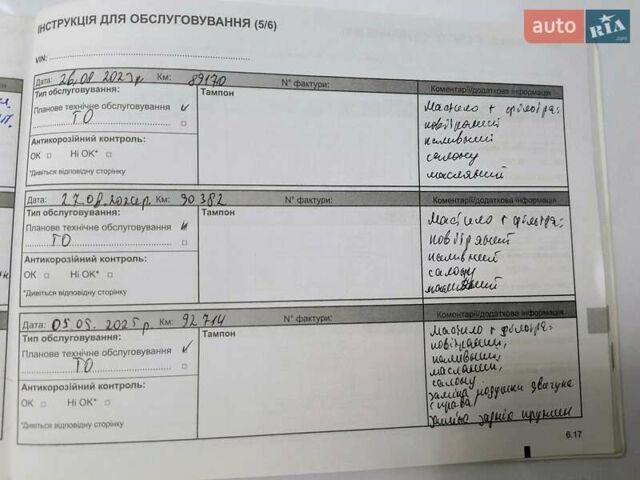 ІНСТРУКЦІЯ ДЛЯ ОБСЛУГОВУВАННЯ (5/6)
auto RIA.com
VIN:
Дата: 26.08.2023р. Км: 89170 N° фактури: Коментарі/додаткова інформація
Тип обслуговування: Тампон
Планове технічне обслуговування
ТО
Антикорозійний контроль:
OK □ Ні OK* □
*Дивіться відповідну сторінку
Мастило + фільтра:
повітряний
паливний
салону
масляний
Дата: 27.08.2024р. Км: 90382 N° фактури: Коментарі/додаткова інформація
Тип обслуговування: Тампон
Планове технічне обслуговування
ТО
Антикорозійний контроль:
OK □ Ні OK* □
*Дивіться відповідну сторінку
Мастило + фільтра:
повітряний
паливний
салону
масляний
Дата: 05.05.2025р. Км: 92714 N° фактури: Коментарі/додаткова інформація
Тип обслуговування: Тампон
Планове технічне обслуговування
ТО
Антикорозійний контроль:
OK □ Ні OK* □
*Дивіться відповідну сторінку
Мастило + фільтра:
повітряний,
паливний,
масляний,
салону
заміна подушки двигуна
справа
заміна задніх пружин
6.17